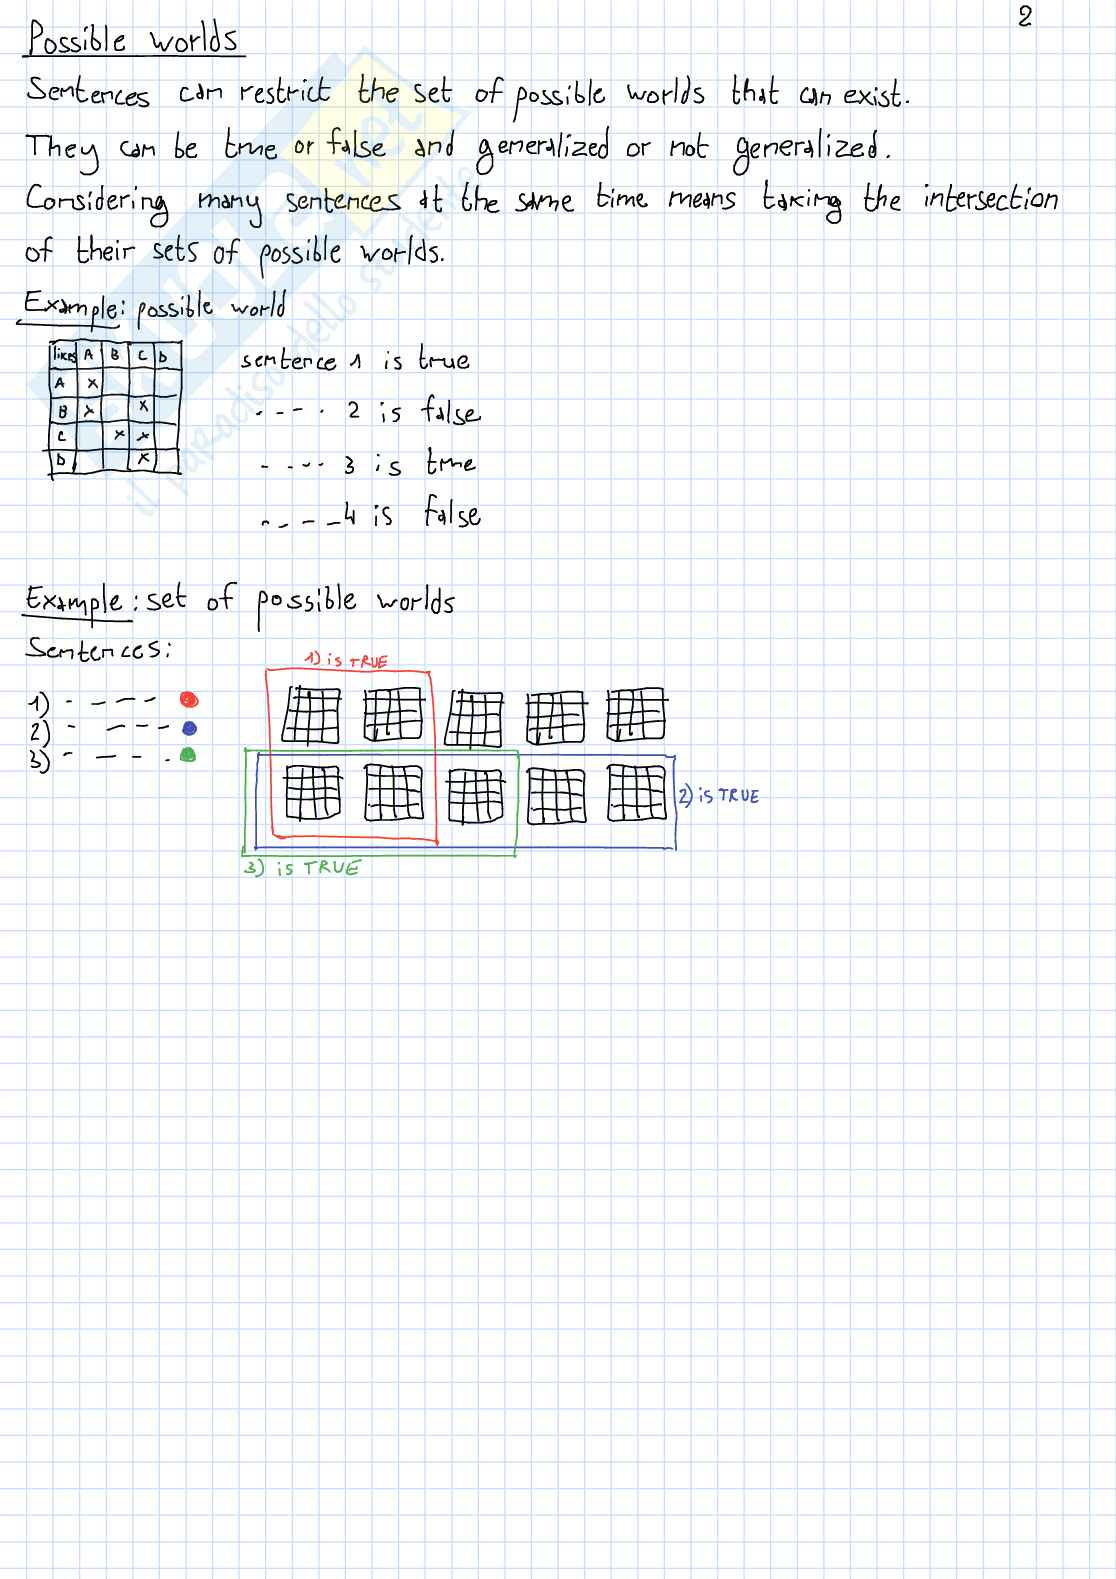 2
Possible worlds
Sentences can restrict the set of possible worlds that can exist.
They can be true or false and generalized or not generalized.
Considering many sentences at the same time means taking the intersection
of their sets of possible worlds.
Example: possible world
likes A B C D
A x
B x x
C x x
D x
sentence 1 is true
---- 2 is false
---- 3 is true
---- 4 is false
Example: set of possible worlds
Sentences:
1) is TRUE
1) - - - -
2) - - - -
3) - - - .
2) is TRUE
3) is TRUE
il paradiso dello studente